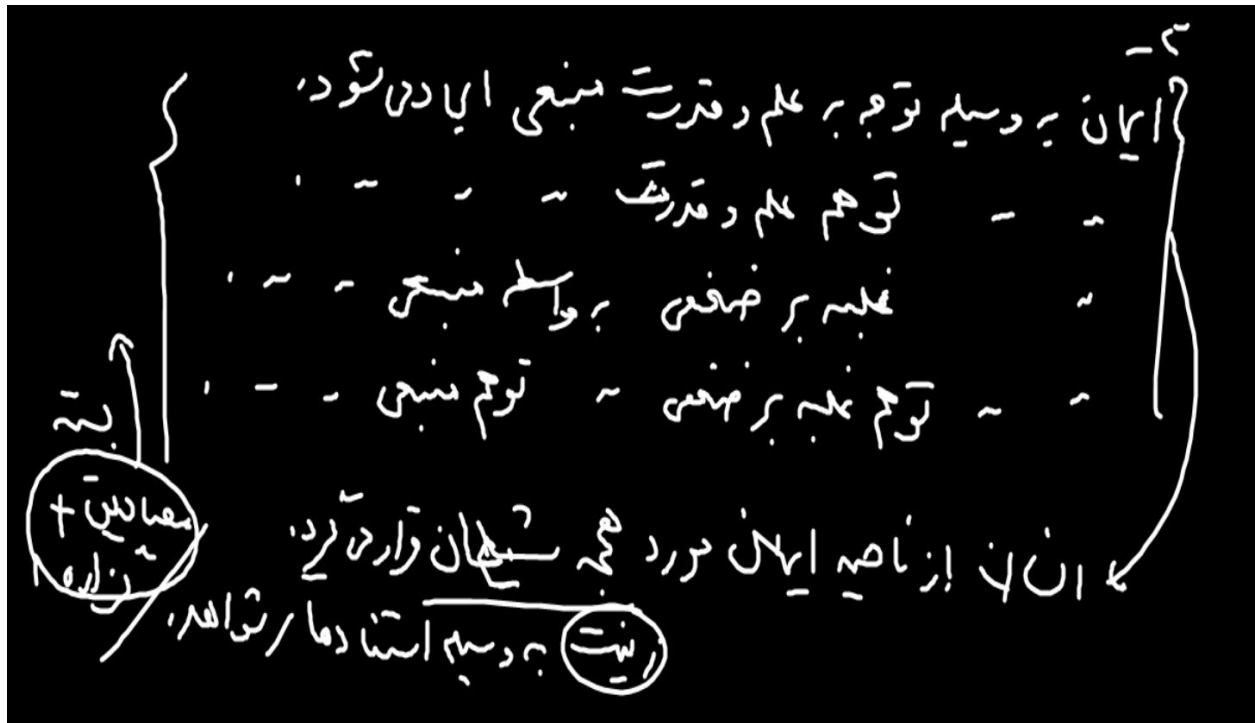 ۲-
ایمان به وسیله توجه به علم و قدرت منبعی ایجاد می شود.
〃 〃 توهم علم و قدرت 〃 〃 〃 〃 .
〃 غلبه بر ضعفی به واسطه منبعی 〃 〃 .
〃 〃 توهم غلبه بر ضعفی 〃 توهم منبعی 〃 〃 .
انسان از ناحیه ایمان مورد هجمه شیطان قرار می گیرد.
زینت به وسیله استنادها / شواهد.
بسته
مضامین +
گزاره